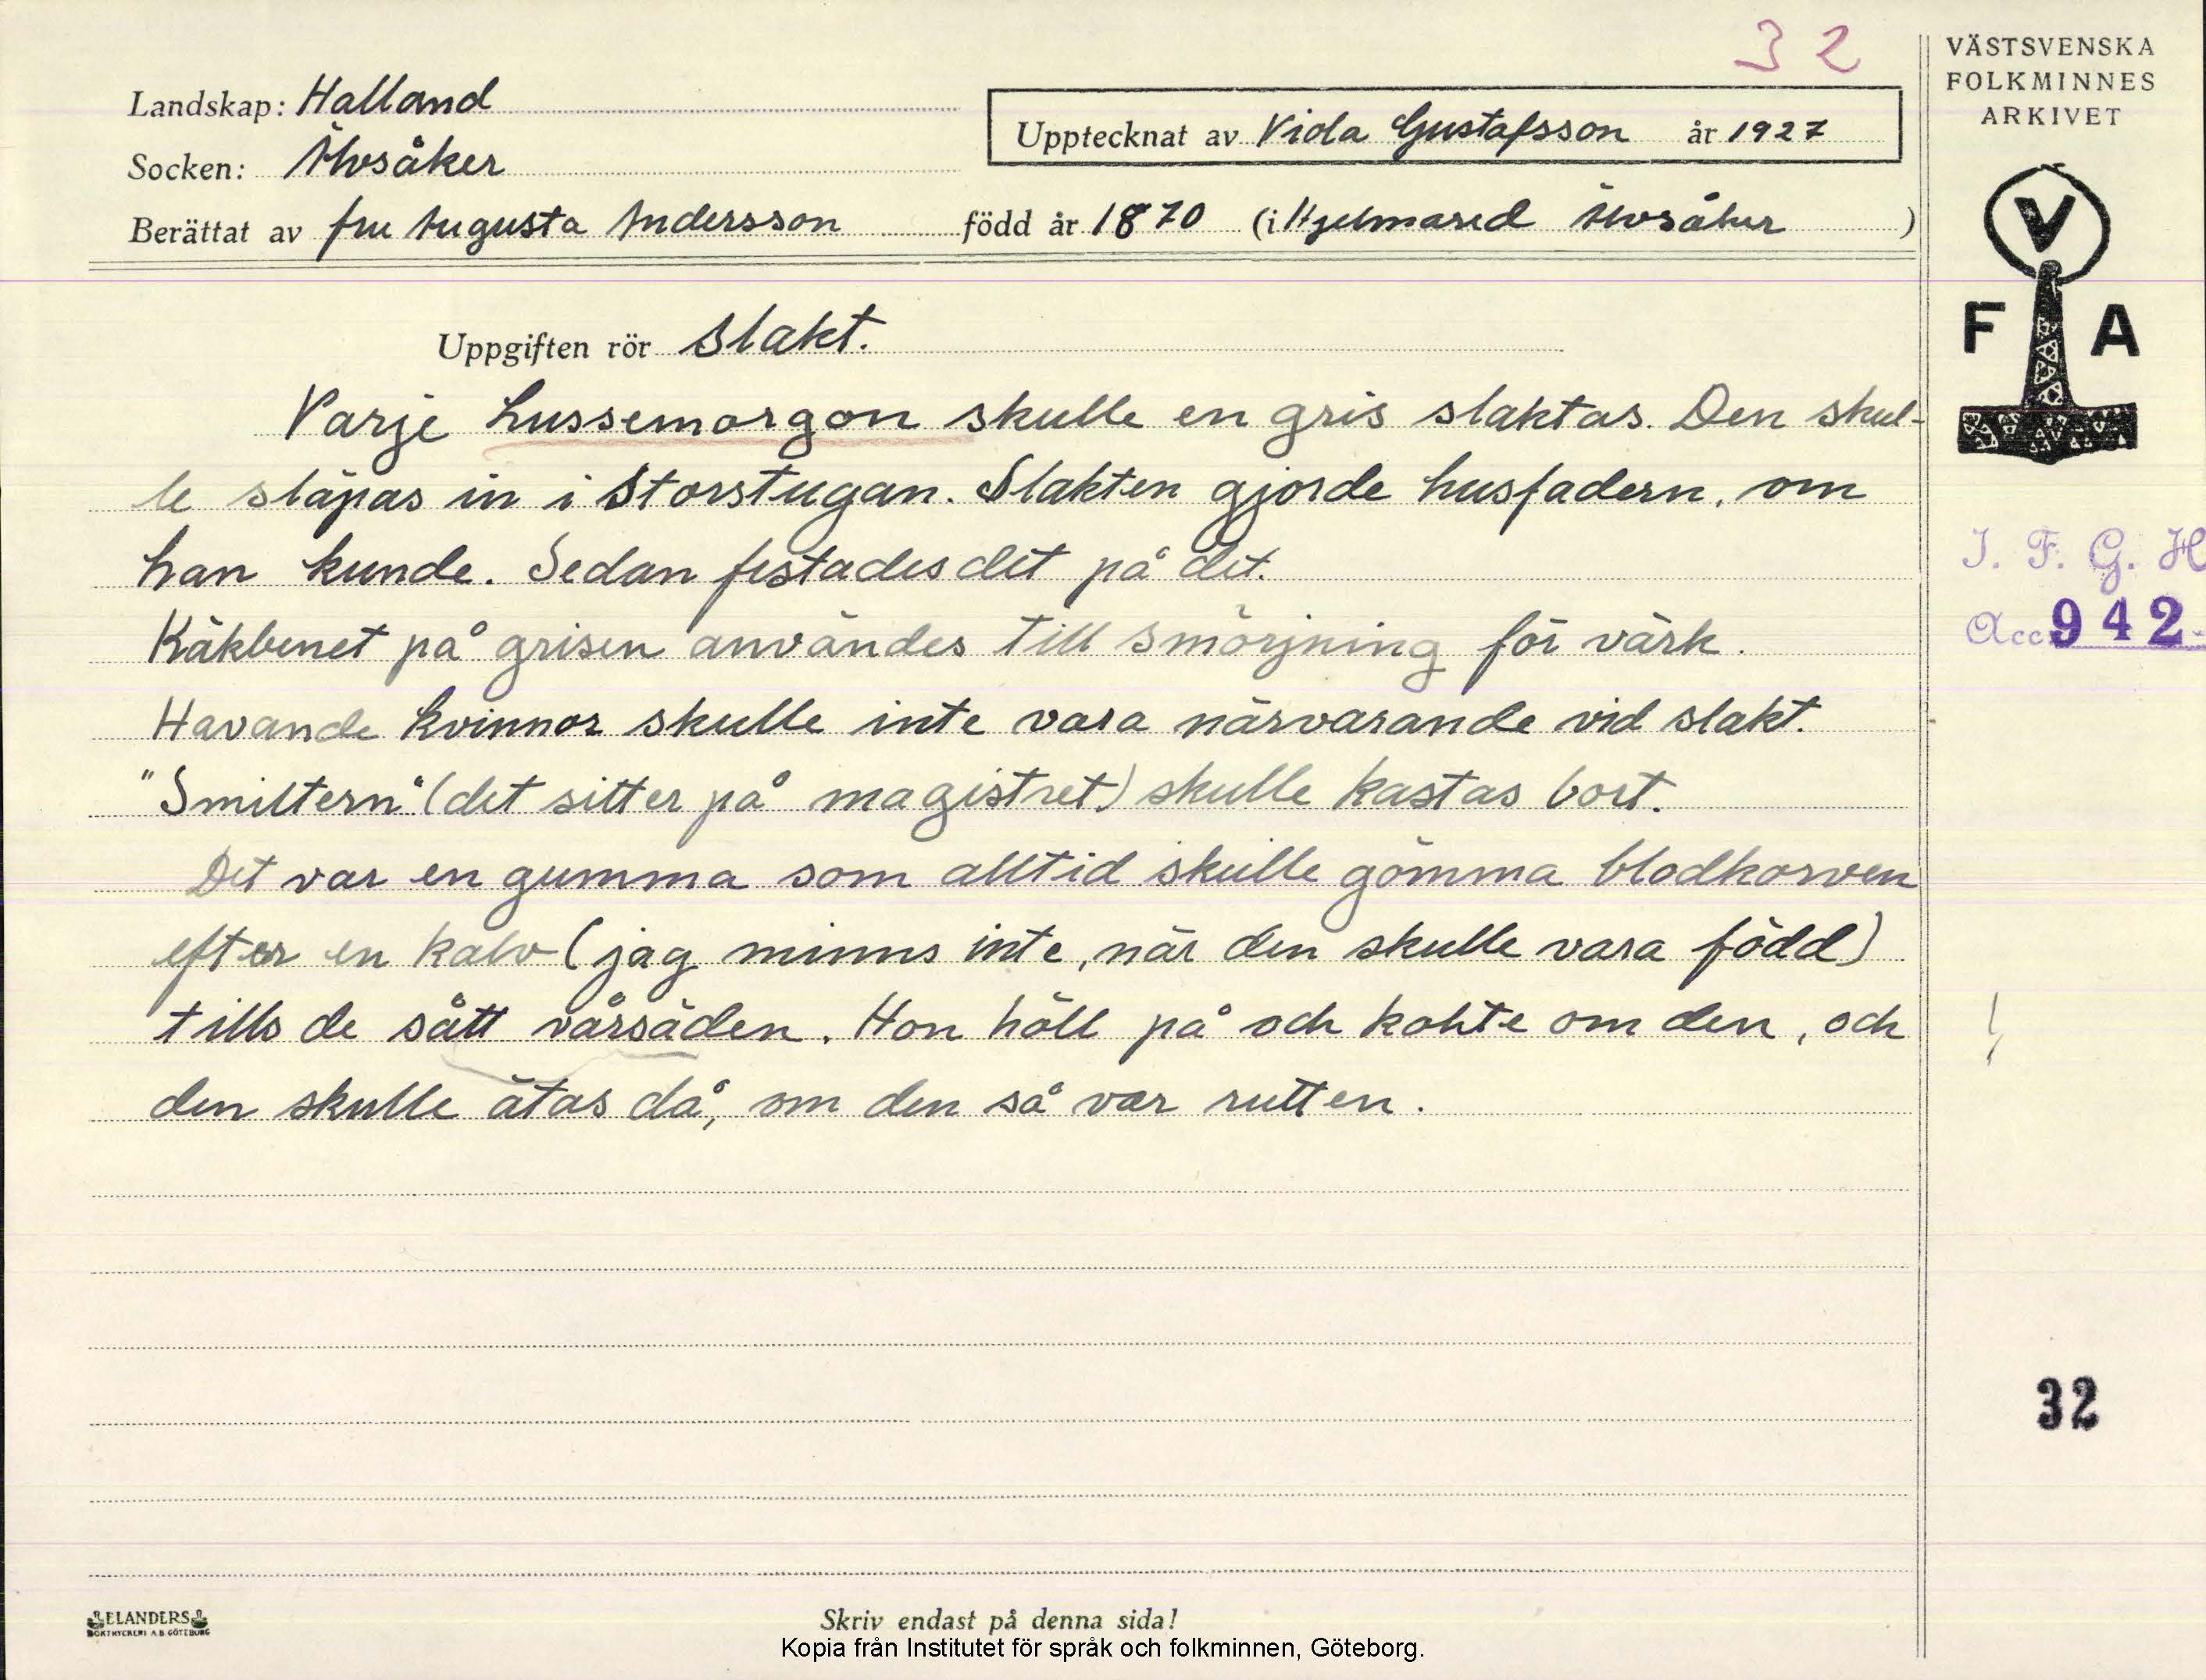 32
VÄSTSVENSKA
FOLKMINNES
ARKIVET
Landskap: Halland
Upptecknat av Viola Gustafsson år 1927
Socken: Älvsåker
Berättat av fru Augusta Andersson född år 1870 (i Hjelmared Älvsåker)
V
F A
Uppgiften rör Slakt.
Varje Lussemorgon skulle en gris slaktas. Den skul-
le släpas in i Storstugan. Slakten gjorde husfadern, om
han kunde. Sedan festades det på det.
Käkbenet på grisen användes till smörjning för värk.
Havande kvinnor skulle inte vara närvarande vid slakt.
"Smiltern" (det sitter på magistret) skulle kastas bort.
Det var en gumma som alltid skulle gömma blodkorven
efter en kalv (jag minns inte, när den skulle vara född)
tills de sått vårsäden. Hon höll på och kohte om den, och
den skulle ätas då, om den så var rutten.
I. F. G. H
Acc 942
32
ELANDERS
BOKTRYCKERI A.B. GÖTEBORG
Skriv endast på denna sida!
Kopia från Institutet för språk och folkminnen, Göteborg.